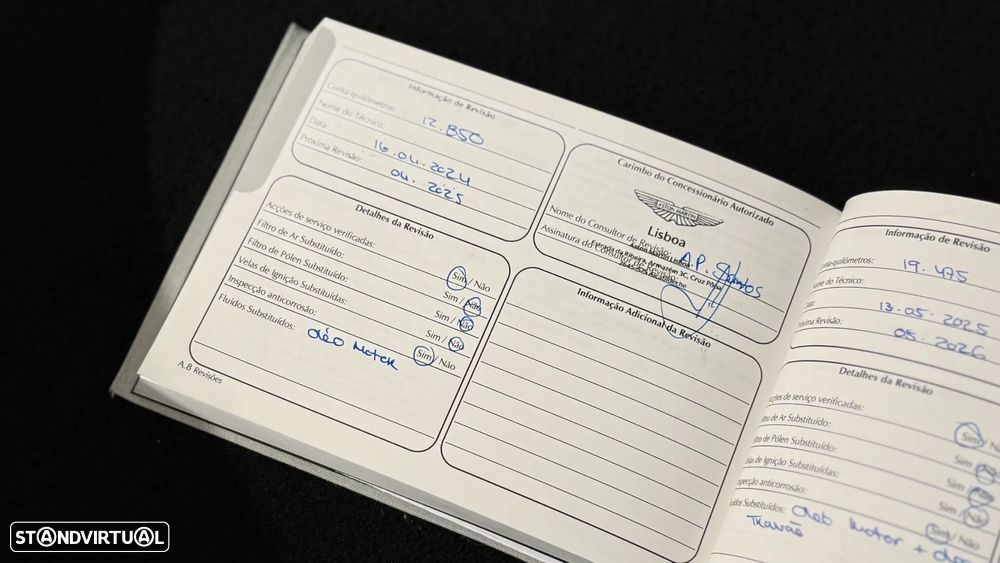 Informação de Revisão
Conta-quilómetros: 12.850
Nome do Técnico:
Data: 16.04.2024
Próxima Revisão: 04.2025
Detalhes da Revisão
Acções de serviço verificadas: Sim / Não
Filtro de Ar Substituído: Sim / Não
Filtro de Pólen Substituído: Sim / Não
Velas de Ignição Substituídas: Sim / Não
Inspecção anticorrosão: Sim / Não
Fluidos Substituídos: óleo Motor
A.8 Revisões
Carimbo do Concessionário Autorizado
ASTON MARTIN
Lisboa
Nome do Consultor de Revisão: A.P.
Aston Martin Lisboa
Assinatura do Consultor de Revisão:
Estrada da Ribeira, Armazém 3C, Cruz
Informação Adicional da Revisão
Informação de Revisão
Conta-quilómetros: 19.475
Nome do Técnico:
Data: 13.05.2025
Próxima Revisão: 05.2026
Detalhes da Revisão
cções de serviço verificadas: Sim / N
iltro de Ar Substituído: Sim
tro de Pólen Substituído: Sim / Não
elas de Ignição Substituídas: Sim / Não
specção anticorrosão: Sim / Não
luidos Substituídos: óleo Motor +
STANDVIRTUAL